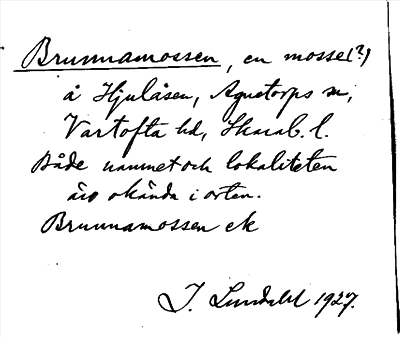 Brunnamossen, en mosse(?)
å Hjulåsen, Agnetorps sn,
Vartofta hd, Skarab. l.
Både namnet och lokaliteten
äro okända i orten.
Brunnamossen ek
J. Lundahl 1927.